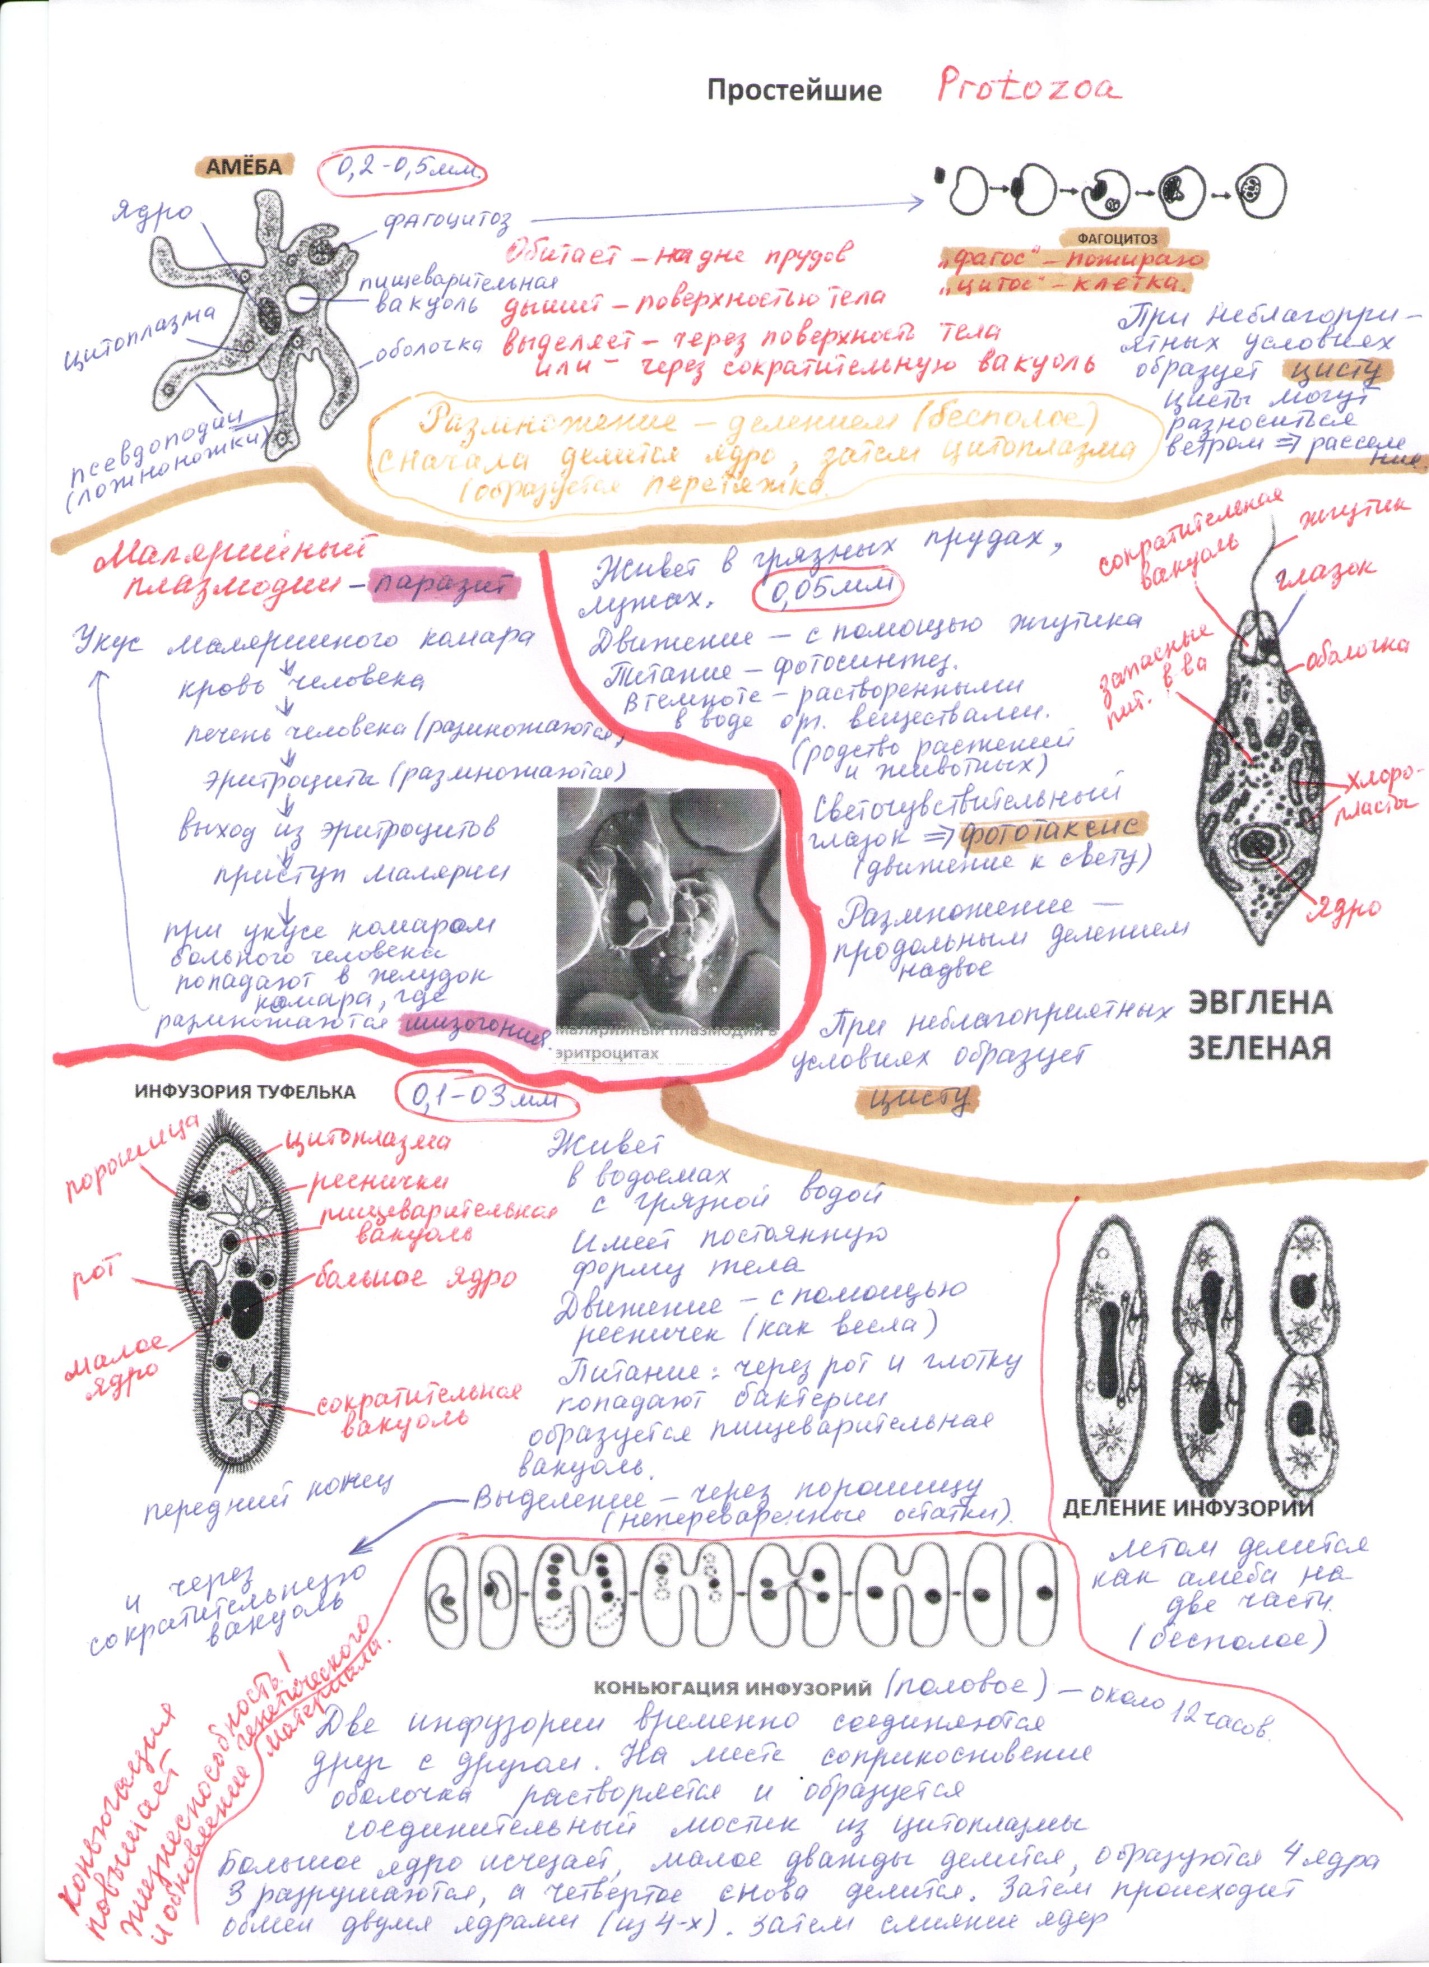 Простейшие Protozoa
АМЁБА
0,2-0,5мм.
ядро
фагоцитоз
пищеварительная
вакуоль
цитоплазма
оболочка
псевдоподии
(ложноножки)
Обитает – на дне прудов
дышит – поверхностью тела
выделяет – через поверхность тела
или – через сократительную вакуоль
ФАГОЦИТОЗ
„фагос“ – пожираю
„цитос“ – клетка.
При неблагопри-
ятных условиях
образует цисту
Цисты могут
разноситься
ветром ⇒ расселе
ние.
Размножение – делением (бесполое)
сначала делится ядро, затем цитоплазма
(образуется перетяжка
Малярийный
плазмодии – паразит
Укус малярийного комара
кровь человека
печень человека (размножаются)
эритроциты (размножаются)
выход из эритроцитов
приступ малярии
при укусе комаром
больного человека
попадают в желудок
комара, где
размножаются шизогония.
малярийный плазмодий в
эритроцитах
Живет в грязных прудах,
лужах. 0,05мм
Движение – с помощью жгутика
Питание – фотосинтез.
В темноте – растворенными
в воде орг. веществами.
(родство растений
и животных)
Светочувствительный
глазок ⇒ фототаксис
(движение к свету)
Размножение –
продольным делением
надвое
При неблагоприятных
условиях образует
цисту
сократительная
вакуоль
жгутик
глазок
запасные
пит. в ва
оболочка
хлоро-
пласты
ядро
ЭВГЛЕНА
ЗЕЛЕНАЯ
ИНФУЗОРИЯ ТУФЕЛЬКА
0,1-03мм
порошица
цитоплазма
реснички
пищеварительная
вакуоль
рот
большое ядро
малое
ядро
сократительная
вакуоль
передний конец
Живет
в водоемах
с грязной водой
Имеет постоянную
форму тела
Движение – с помощью
ресничек (как весла)
Питание: через рот и глотку
попадают бактерии
образуется пищеварительная
вакуоль.
Выделение – через порошицу
(непереваренные остатки).
и через
сократительную
вакуоль
ДЕЛЕНИЕ ИНФУЗОРИИ
летом делится
как амеба на
две части.
(бесполое)
КОНЬЮГАЦИЯ ИНФУЗОРИЙ (половое) – около 12 часов.
Две инфузории временно соединяются
друг с другом. На месте соприкосновение
оболочка растворяется и образуется
соединительный мостик из цитоплазмы
Большое ядро исчезает, малое дважды делится, образуются 4 ядра
3 разрушаются, а четвертое снова делится. Затем происходит
обмен двумя ядрами (из 4-х). Затем слияние ядер
Коньюгация
повышает
жизнеспособность!
и обновление генетического
материала.